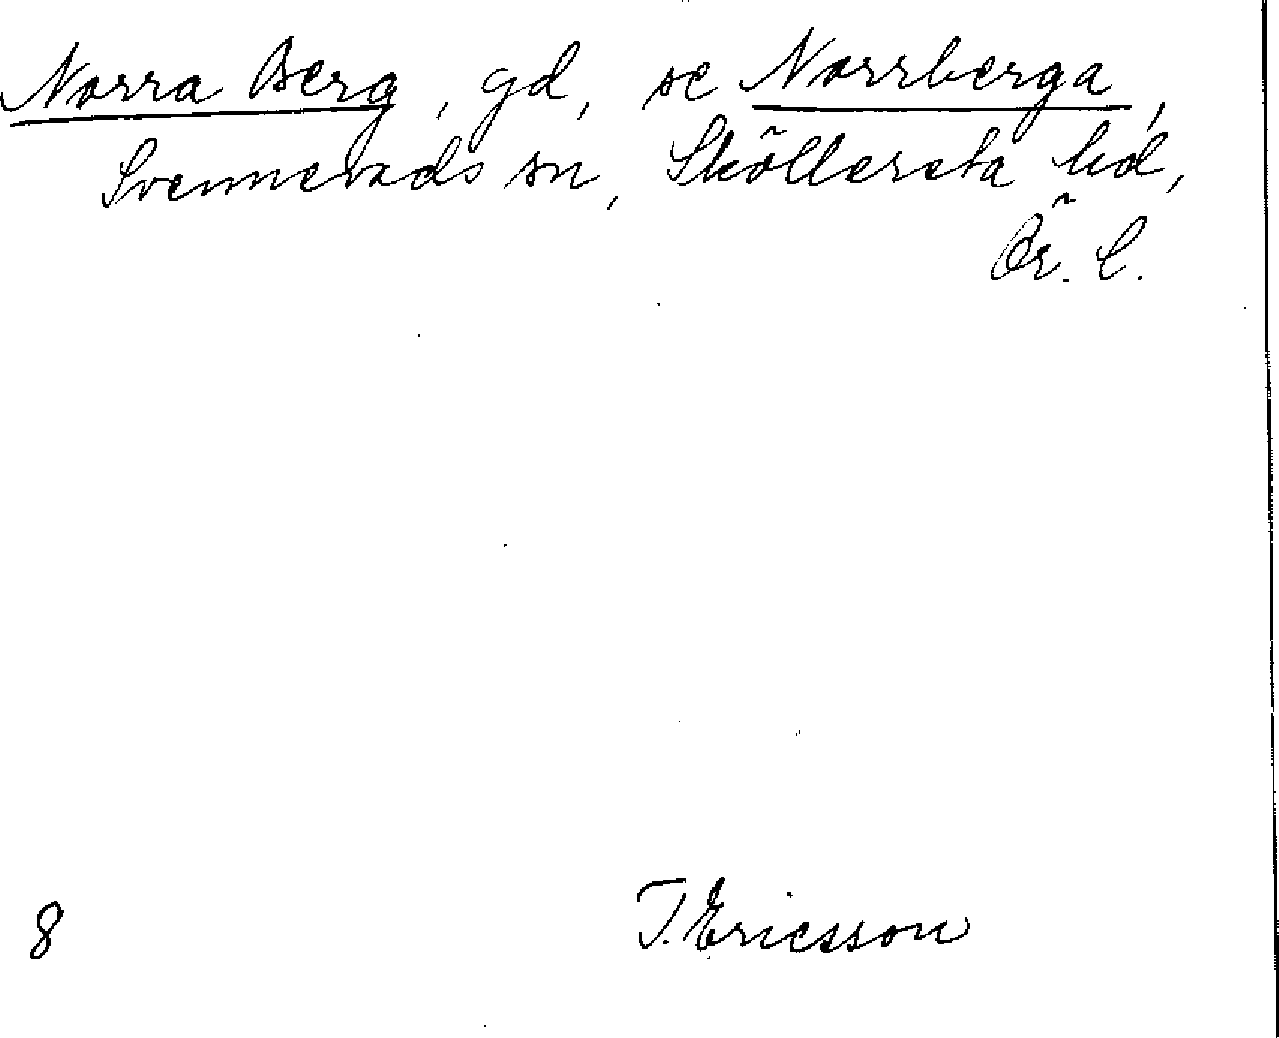 Norra Berg, gd, se Norrberga,
Svennevads sn, Sköllersta hd,
Ör. l.
8 T. Ericsson